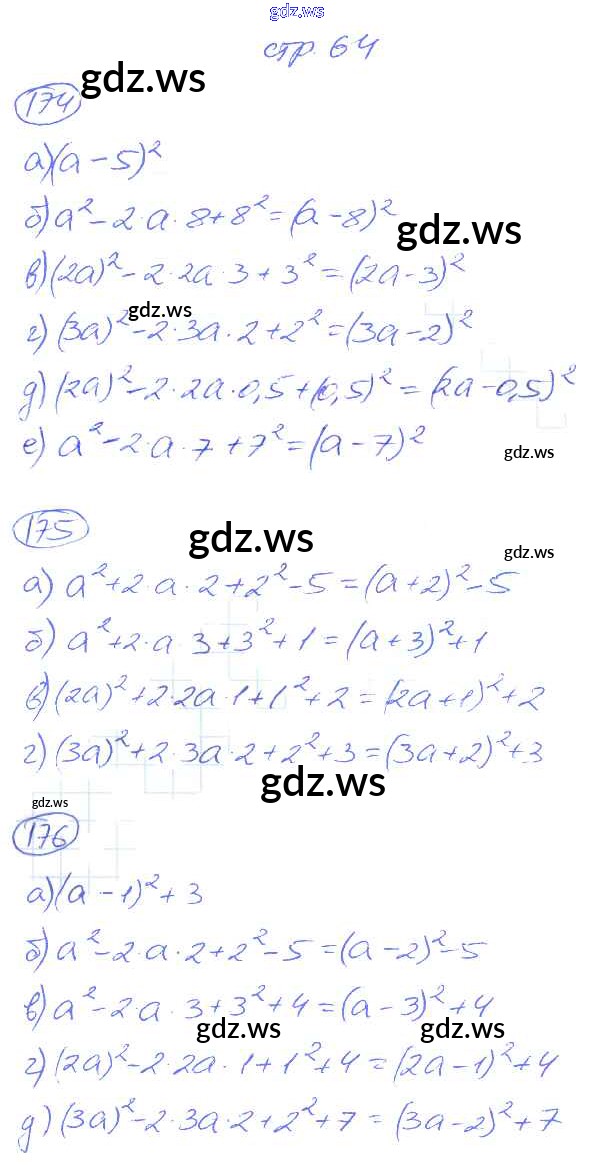 gdz.ws
стр. 64
gdz.ws
174
а) (a – 5)²
б) a² – 2·a·8 + 8² = (a – 8)²
gdz.ws
в) (2a)² – 2·2a·3 + 3² = (2a – 3)²
gdz.ws
г) (3a)² – 2·3a·2 + 2² = (3a – 2)²
д) (2a)² – 2·2a·0,5 + (0,5)² = (2a – 0,5)²
е) a² – 2·a·7 + 7² = (a – 7)²
gdz.ws
175
gdz.ws
gdz.ws
а) a² + 2·a·2 + 2² – 5 = (a + 2)² – 5
б) a² + 2·a·3 + 3² + 1 = (a + 3)² + 1
в) (2a)² + 2·2a·1 + 1² + 2 = (2a + 1)² + 2
г) (3a)² + 2·3a·2 + 2² + 3 = (3a + 2)² + 3
gdz.ws
gdz.ws
176
а) (a – 1)² + 3
б) a² – 2·a·2 + 2² – 5 = (a – 2)² – 5
в) a² – 2·a·3 + 3² + 4 = (a – 3)² + 4
gdz.ws gdz.ws
г) (2a)² – 2·2a·1 + 1² + 4 = (2a – 1)² + 4
д) (3a)² – 2·3a·2 + 2² + 7 = (3a – 2)² + 7